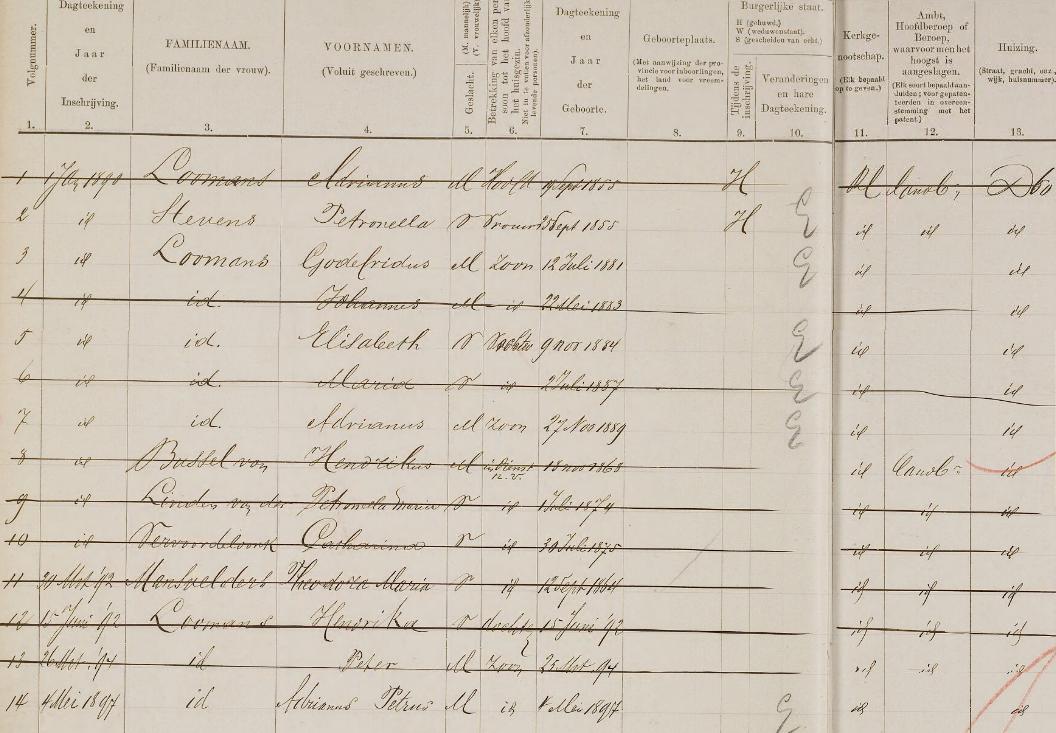 Volgnummer. Dagteekening en Jaar der Inschrijving. FAMILIENAAM. (Familienaam der vrouw). VOORNAMEN. (Voluit geschreven.) Geslacht. (M. mannelijk) (V. vrouwelijk) Betrekking van elken persoon tot het hoofd van het huisgezin. Dagteekening en Jaar der Geboorte. Geboorteplaats. (Met aanwijzing der provincie voor inboorlingen, het land voor vreemdelingen. Burgerlijke staat. H (gehuwd.) W (weduwenstaat). S (gescheiden van echt.) Tijdens de inschrijving. Veranderingen en hare Dagteekening. Kerkgenootschap. (Elk bepaald op te geven.) Ambt, Hoofdberoep of Beroep, waarvoor men het hoogst is aangeslagen. Huizing. (Straat, gracht, enz., wijk, huisnummer).
1. 2. 3. 4. 5. 6. 7. 8. 9. 10. 11. 12. 13.
1 1 Jan 1890 Loomans Adrianus M Hoofd Sept 1855 H D 60
2 id Stevens Petronella V Vrouw 25 Sept 1855 H id id id
3 id Loomans Godefridus M Zoon 12 Juli 1881 id id
4 id id. Johannes M id 22 Mei 1883 id id
5 id id. Elisabeth V Dochter 9 nov 1884 id id
6 id id. Maria V id 2 Juli 1887 id id
7 id id. Adrianus M Zoon 27 Nov 1889 id id
8 id Bussel van Hendrikus M in dienst 18 nov 1868 id id
9 id Linden van der Petronella Maria V id Juli 1874 id id id
10 id Catharina V id 30 Juli 1875 id id id
11 Theodora Maria V id 12 Sept 1864 id id id
12 15 Juni '92 Loomans Hendrika V dochter 15 Juni '92 id id id
13 id Peter M Zoon id id id
14 4 Mei 1897 id Adrianus Petrus M id Mei 1897 id id